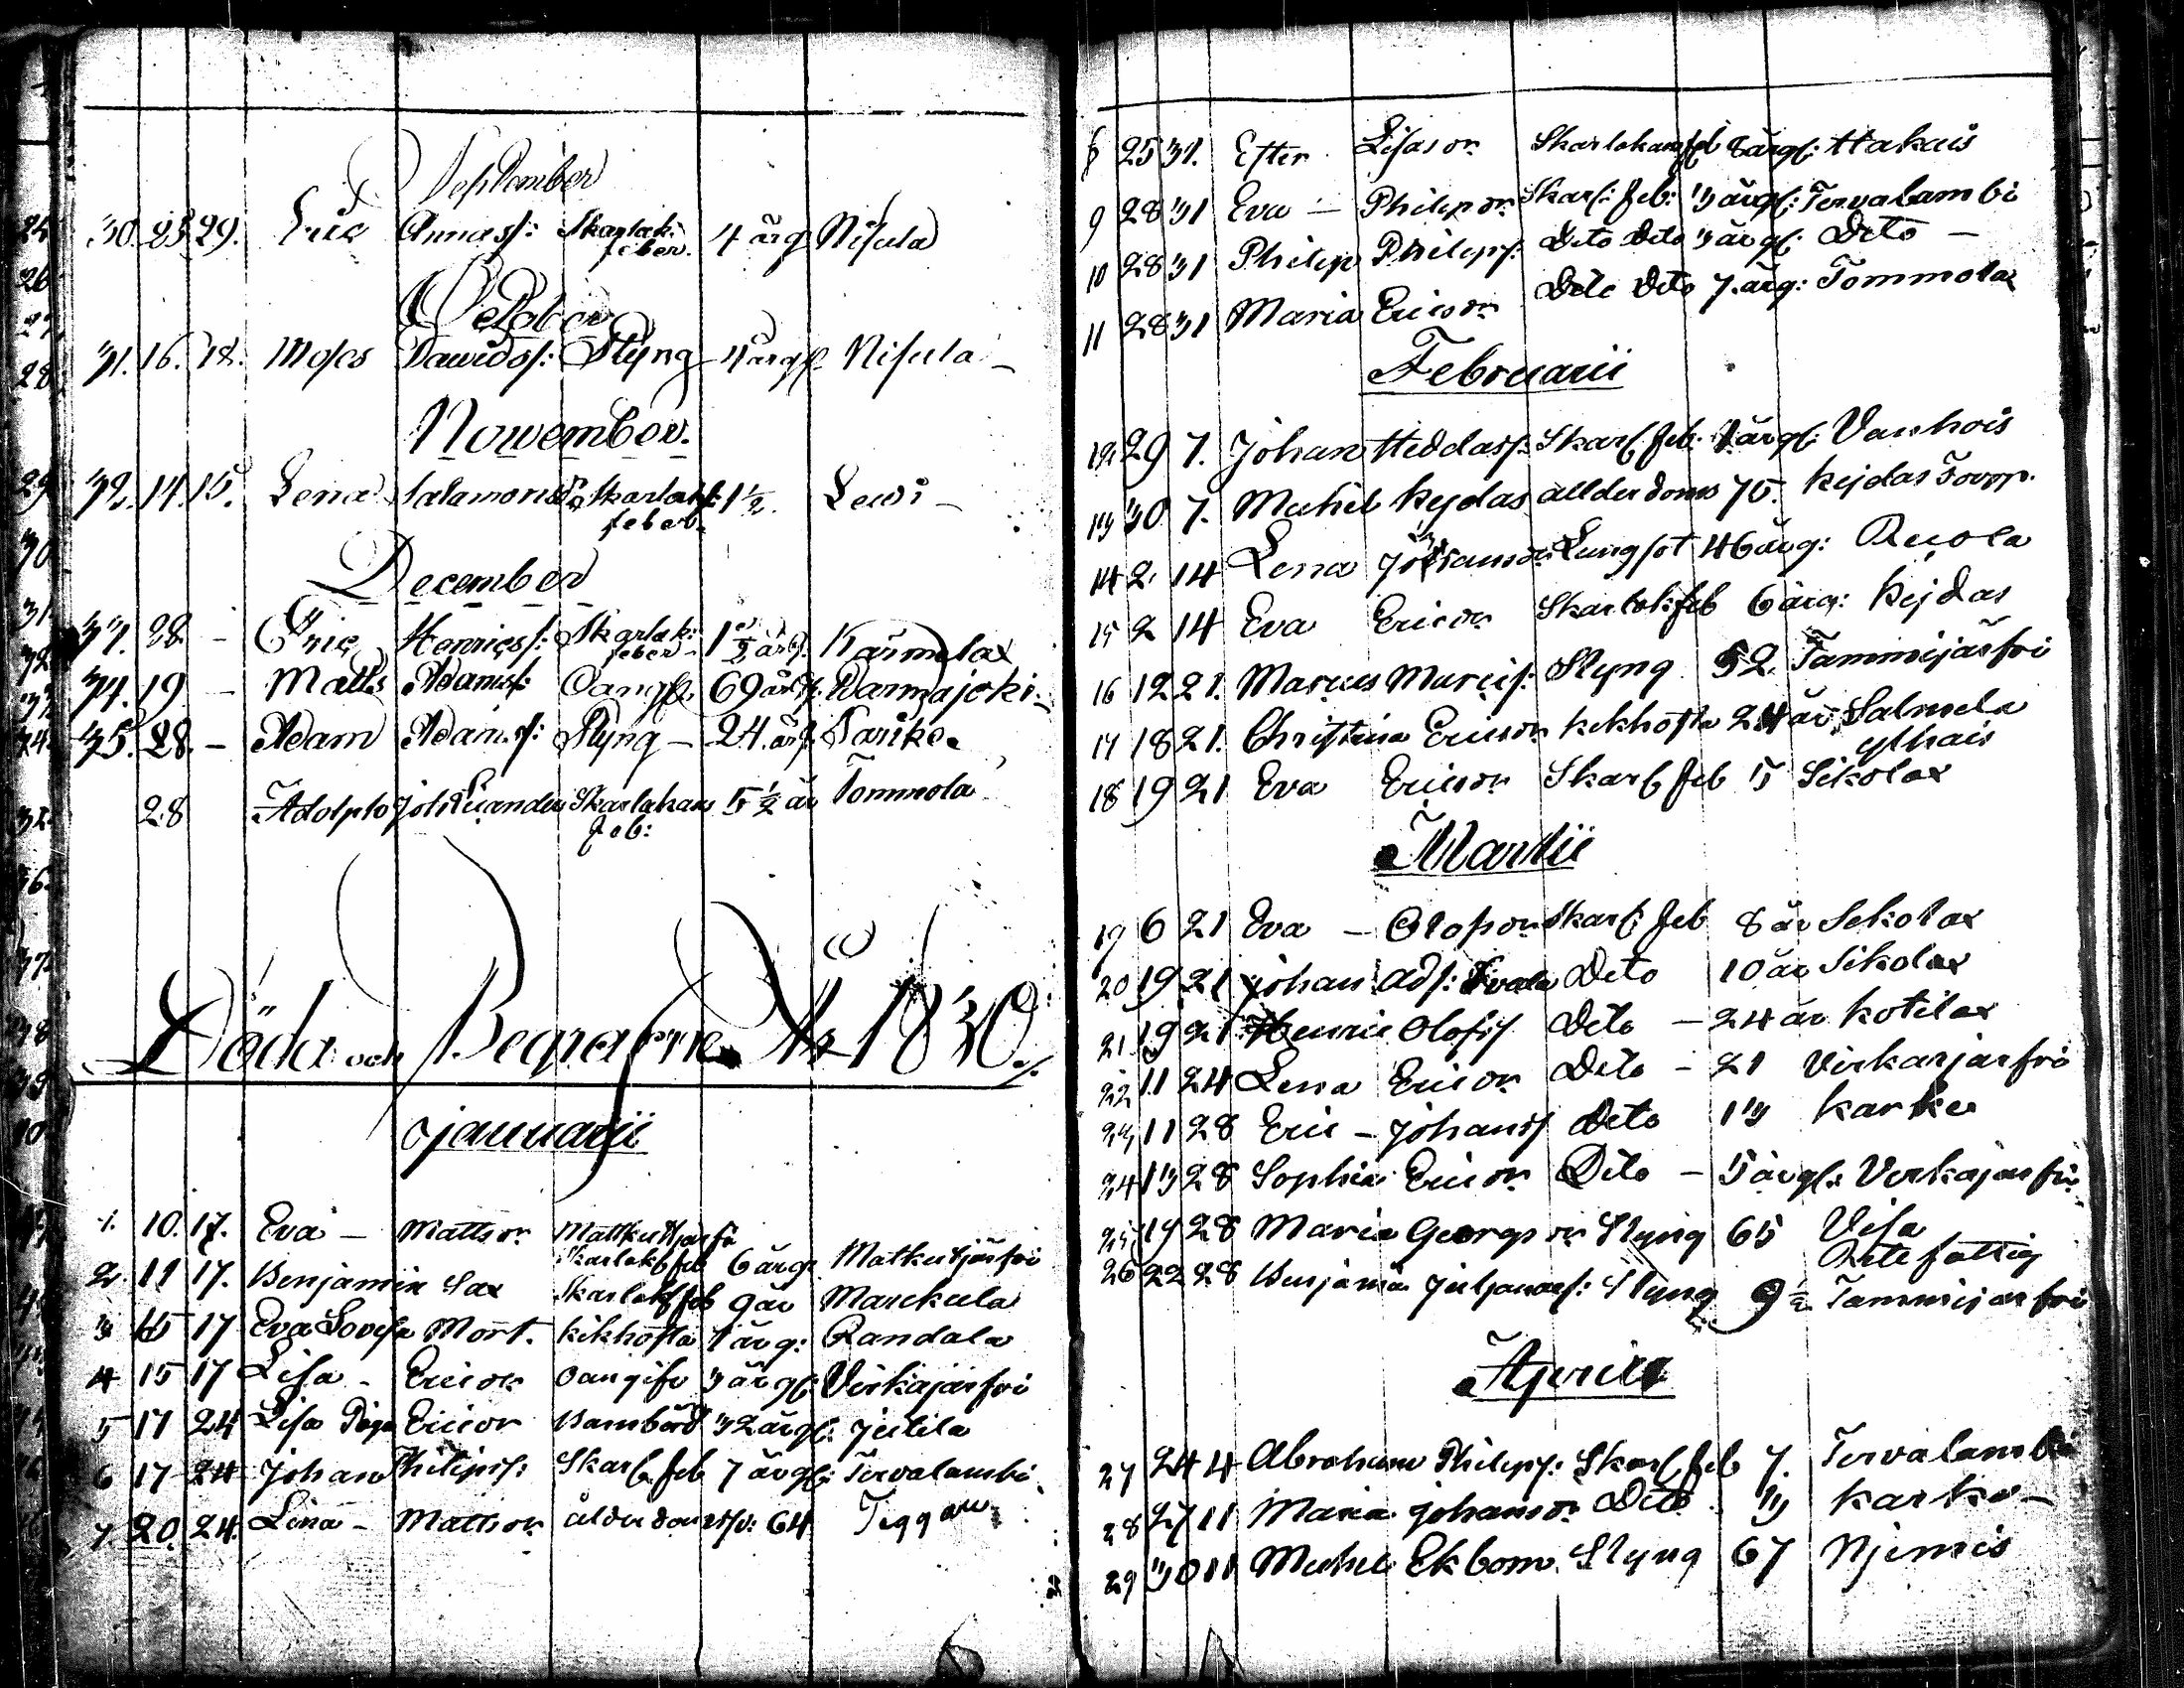 September
30. 23. 29. Eric Annæs: Skarlak: 4 årg Nisula
feber.
October
31. 16. 18. Moses Davids: Styng 4 årgl. Nisula -
Nowember.
32. 14. 15. Lena Salamons Skarlak: 1½. Lewi -
feber.
December
28. - Eric Henrics: Skarlak: 1½ årg. Karmolax
feber -
34. 19 - Matts Adams: 69 årg:
35. 28. - Adam Adams: Styng - 24. årg.
28 Adolph Joh Skarlakans 5½ år Tommola
Feb:
Döda och Begrafne År 1830.
Januarii
1. 10. 17. Eva - Mattsor
Skarlak feb 6 årg. Matkusjärfvi
2. 11 17. Benjamin Sax Skarlak feb 9 år Marckula
3 15 17 Eva Lovisa Mört. kikhosta 1 årg: Randala
4 15 17 Lisa - Ericor 3 årgl: Virkajärfvi
5 17 24 Lisa Piga Ericor Barnbörd 32 årgl: Jutila
6 17 24 Johan Philips: Skarl. feb 7 årgl: Tervalambi
7. 20. 24. Lena - Mattsor 64
8 25 31. Ester Lisasor Skarlakans feb 8 årgl: Hakais
9 28 31 Eva - Philipsor Skarl: feb: 3 årgl: Tervalambi
10 28 31 Philip Philips: Dito Dito 3 årgl: Dito -
11 28 31 Maria Ericsor Dito Dito 7. årg: Tommola
Februarii
12. 29 7. Johan Heddas: Skarl. feb. 1 årgl: Vanhois
13 30 7. Michel Kejdas ållderdoms 75. Kejdas Torpp.
14 2. 14 Lena Johansor Lungsot 46 årg: Ruola
15 2 14 Eva Ericsor Skarlak: feb 6 årg: Kejdas
16 12 21. Marcus Marcis: Styng 52. Tammijärfvi
17 18 21. Christina Ericsor kikhosta 2 år Salmela
18 19 21 Eva Ericsor Skarl. feb 5 Sikolax
Martii
19 6 21 Eva - Olofsor Skarl: feb 8 år Sikolax
20 19 21 Johan Ads: Dito 10 år Sikolax
21. 19 21 Henric Olofss Dito - 24 år Kotilax
22 11 24 Lena Ericsor Dito - 21 Virkajärfvi
23 11 28 Eric - Johanss Dito 13 Karke
24 13 28 Sophia Ericsor Dito - 5 årgl: Virkajärfvi
25 19 28 Maria Georgsor Styng 65 Visa
Rotefattig
26 22 28 Benjamin Julianas: Styng 9½ Tammijärfvi
Aprill
27 24 4 Abraham Philips: Skarl. feb 7. Tervalambi
28 27 11 Maria Johansor Dito 3 Karke -
29 30 11 Michel Ekbom Styng 67 Njemis